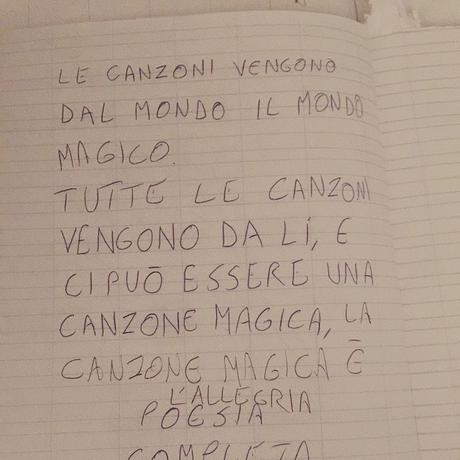 LE CANZONI VENGONO
DAL MONDO IL MONDO
MAGICO.
TUTTE LE CANZONI
VENGONO DA LÍ, E
CI PUŌ ESSERE UNA
CANZONE MAGICA, LA
CANZONE MAGICA Ē
L'ALLEGRIA
POESIA
COMPLETA